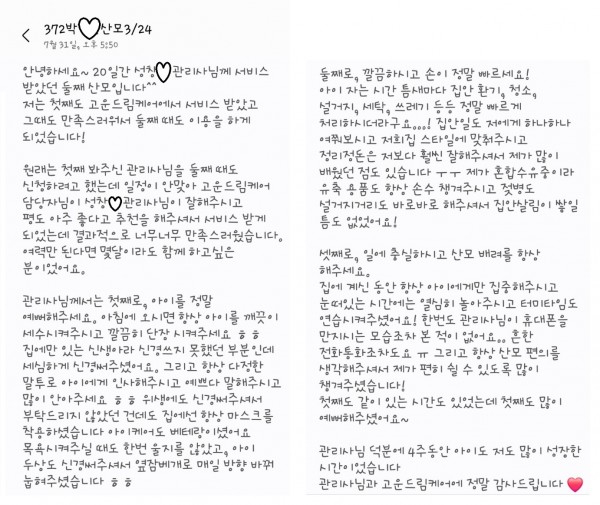 372박♡산모3/24
7월 31일, 오후 5:50
안녕하세요~ 20일간 성창♡관리사님께 서비스
받았던 둘째 산모입니다^^
저는 첫째도 고운드림케어에서 서비스 받았고
그때도 만족스러워서 둘째 때도 이용을 하게
되었습니다!
원래는 첫째 봐주신 관리사님을 둘째 때도
신청하려고 했는데 일정이 안맞아 고운드림케어
담당자님이 성창♡관리사님이 잘해주시고
평도 아주 좋다고 추천을 해주셔서 서비스 받게
되었는데 결과적으로 너무너무 만족스러웠습니다.
여력만 된다면 몇달이라도 함께 하고싶은
분이었어요.
관리사님께서는 첫째로, 아이를 정말
예뻐해주세요. 아침에 오시면 항상 아이를 깨끗이
세수시켜주시고 깔끔히 단장 시켜주세요 ㅎㅎ
집에만 있는 신생아라 신경쓰지 못했던 부분인데
세심하게 신경써주셨어요. 그리고 항상 다정한
말투로 아이에게 인사해주시고 예쁘다 말해주시고
많이 안아주세요 ㅎㅎ 위생에도 신경써주셔서
부탁드리지 않았던 건데도 집에선 항상 마스크를
착용하셨습니다 아이케어도 베테랑이셨어요
목욕시켜주실 때도 한번 울지를 않았고, 아이
두상도 신경써주셔서 옆잠베개로 매일 방향 바꿔
눕혀주셨습니다 ㅎㅎ
둘째로, 깔끔하시고 손이 정말 빠르세요!
아이 자는 시간 틈새마다 집안 환기, 청소,
설거지, 세탁, 쓰레기 등등 정말 빠르게
처리하시더라구요,,,! 집안일도 저에게 하나하나
여쭤보시고 저희집 스타일에 맞춰주시고
정리정돈은 저보다 훨씬 잘해주셔서 제가 많이
배웠던 점도 있습니다 ㅜㅜ 제가 혼합수유중이라
유축 용품도 항상 손수 챙겨주시고 젖병도
설거지거리도 바로바로 해주셔서 집안살림이 쌓일
틈도 없었어요!
셋째로, 일에 충실하시고 산모 배려를 항상
해주세요.
집에 계신 동안 항상 아이에게만 집중해주시고
눈떠있는 시간에는 열심히 놀아주시고 터미타임도
연습시켜주셨어요! 한번도 관리사님이 휴대폰을
만지시는 모습조차 본 적이 없어요.. 흔한
전화통화조차도요 ㅠ 그리고 항상 산모 편의를
생각해주셔서 제가 편히 쉴 수 있도록 많이
챙겨주셨습니다!
첫째도 같이 있는 시간도 있었는데 첫째도 많이
예뻐해주셨어요~
관리사님 덕분에 4주동안 아이도 저도 많이 성장한
시간이었습니다
관리사님과 고운드림케어에 정말 감사드립니다❤